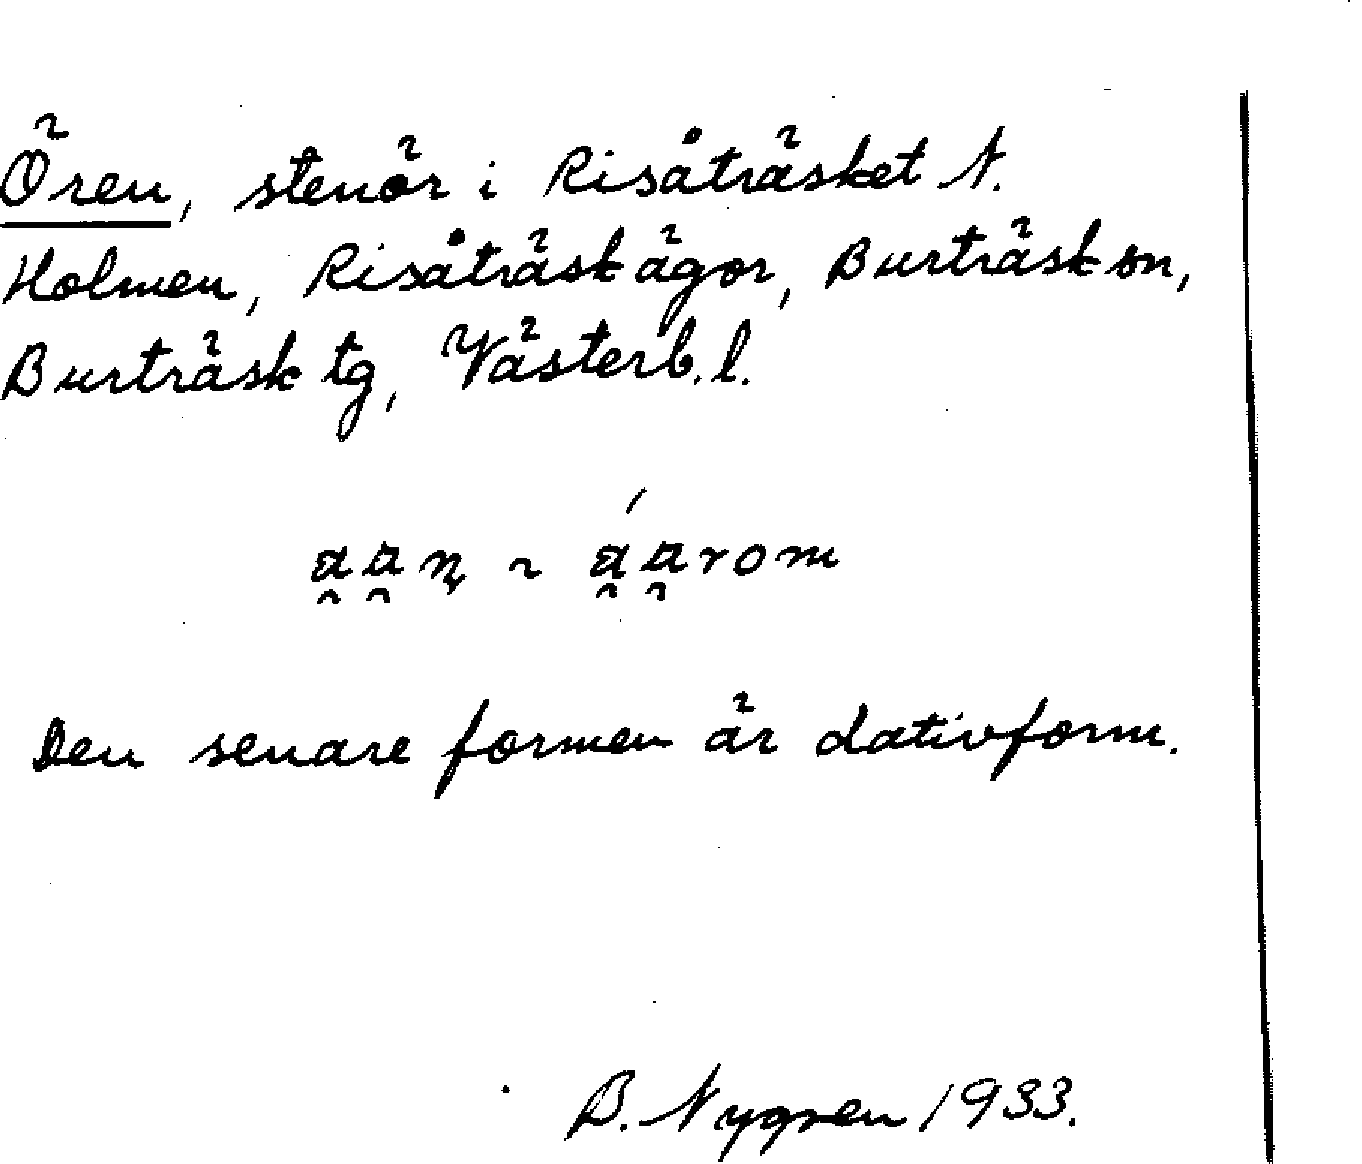 Ören, stenör i Risåträsket N.
Holmen, Risåträsk ägor, Burträsk sn,
Burträsk tg, Västerb. l.
Den senare formen är dativform.
B. Nygren 1933.